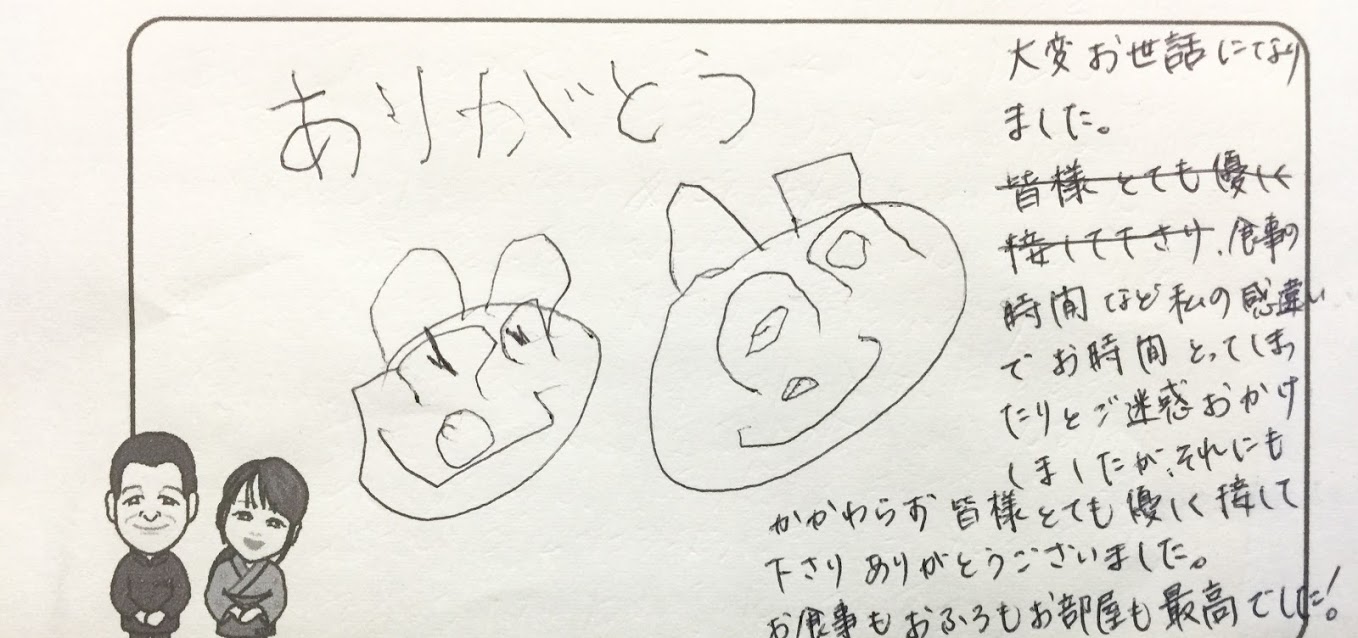 ありがとう
大変お世話になり
ました。
皆様とても優しく
接して下さり、食事の
時間など私の感違い
でお時間とってしまっ
たりとご迷惑おかけ
しましたが、それにも
かかわらず皆様とても優しく接して
下さりありがとうございました。
お食事もおふろもお部屋も最高でした!